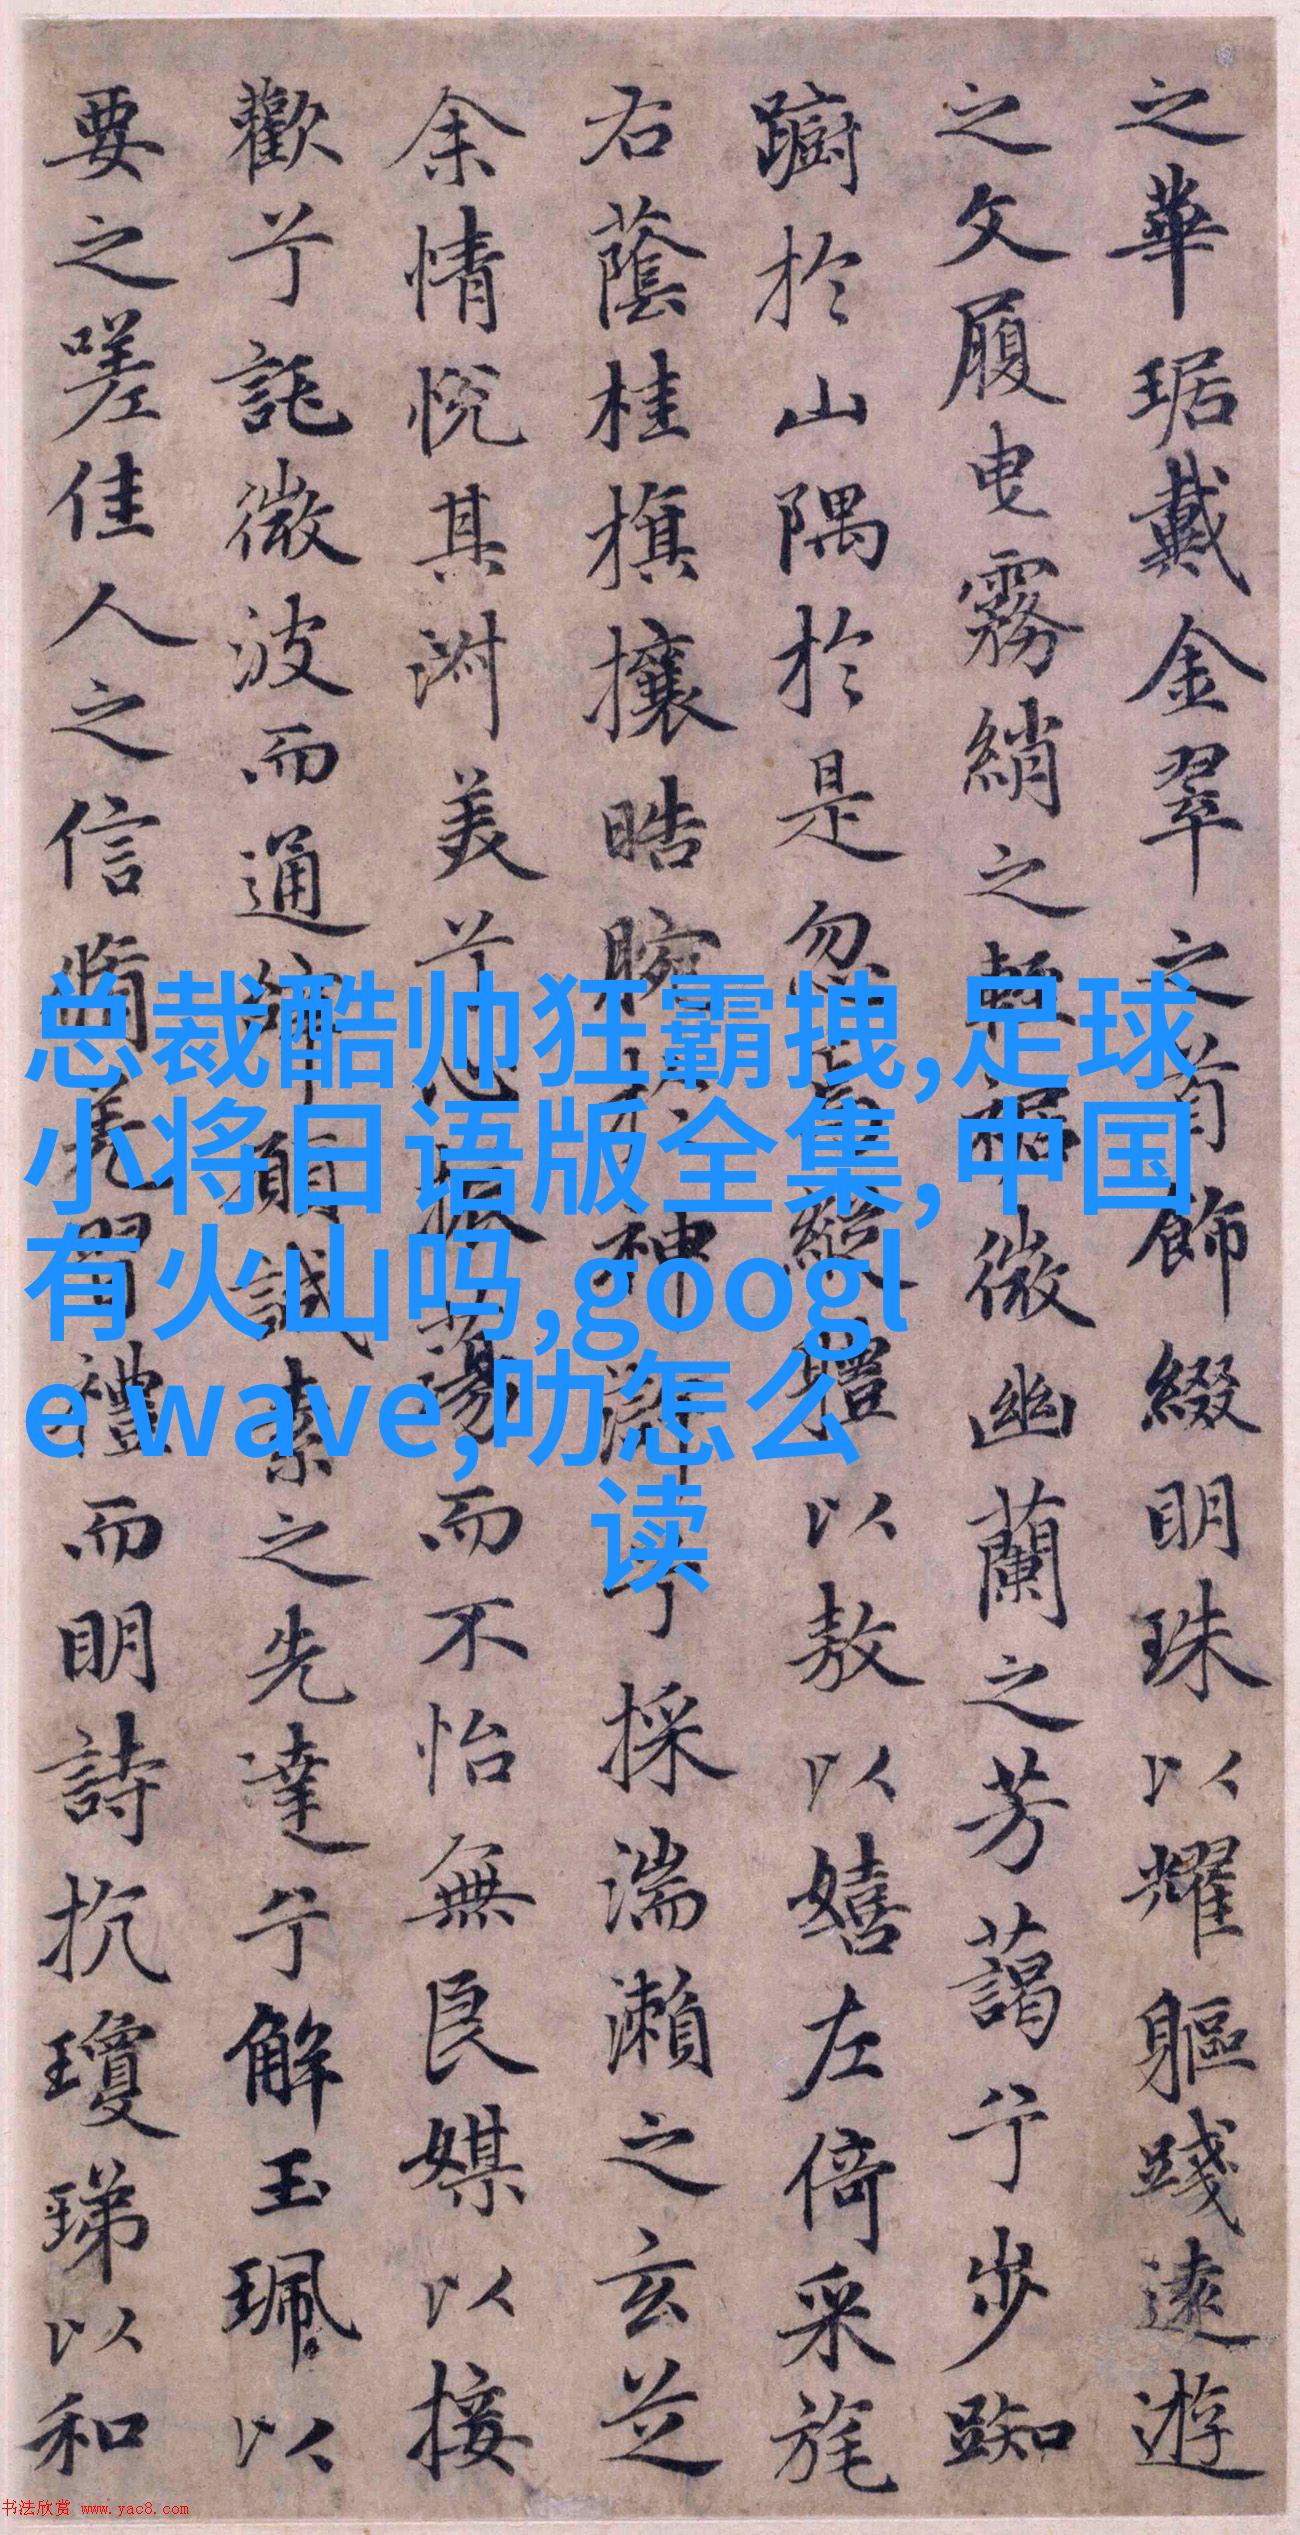 之華琚戴金翠之首飾綴明珠以耀軀踐遠遊
之文履曳霧綃之輕裾微幽蘭之芳藹兮步踟
躕於山隅於是忽焉縱體以敖以嬉左倚采旄
右蔭桂旗攘皓腕於神滸兮採湍瀨之玄芝
余情悅其淑美兮心振蕩而不怡無良媒以接
歡兮託微波而通辭願誠素之先達兮解玉珮以
要之嗟佳人之信脩羌習禮而明詩抗瓊珶以和
总裁酷帅狂霸拽,足球
小将日语版全集,中国
有火山吗,googl
e wave,叻怎么
读
书法欣赏 www.yac8.com